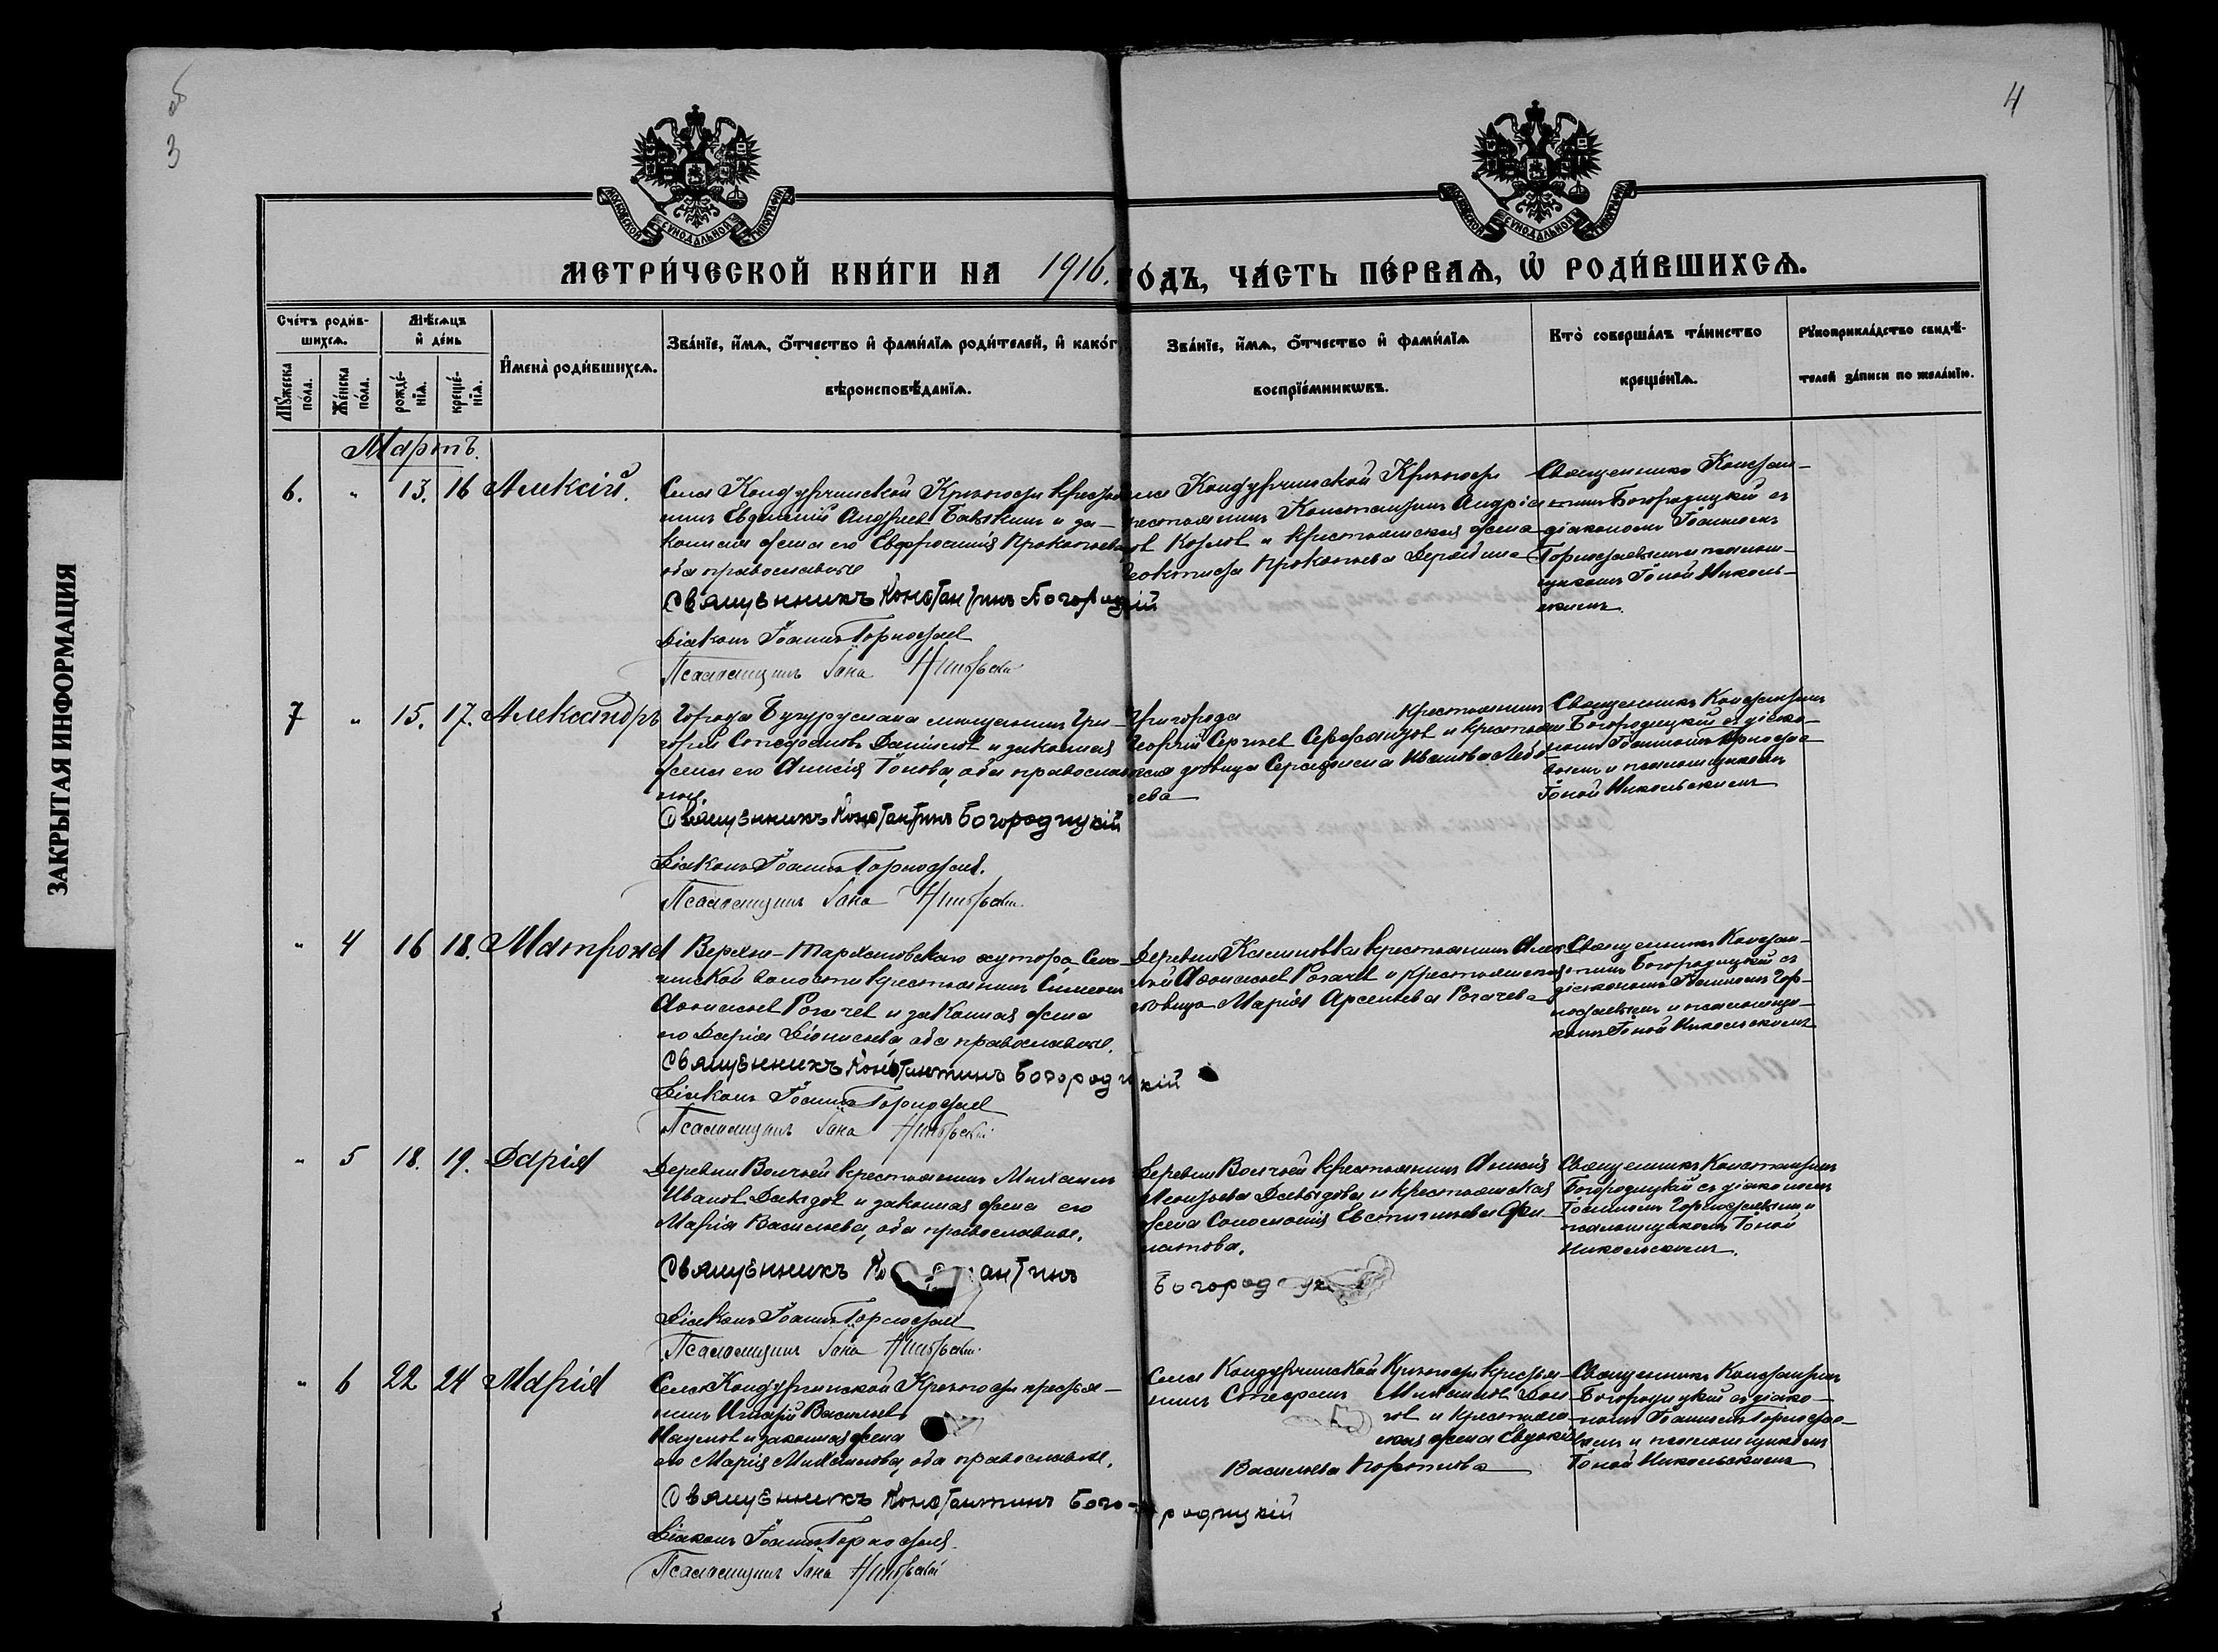 3
4
ЗАКРЫТАЯ ИНФОРМАЦИЯ
МОСКОВСКОЙ СѴНОДАЛЬНОЙ ТИПОГРАФІИ
МОСКОВСКОЙ СѴНОДАЛЬНОЙ ТИПОГРАФІИ
МЕТРИ́ЧЕСКОЙ КНИ́ГИ НА 1916. ГО́ДЪ, ЧА́СТЬ ПЕ́РВАѦ, Ѡ҆ РОДИ́ВШИХСѦ.
Сче́тъ роди́в-
шихсѧ.
Мꙋ́жеска по́ла.
Же́нска по́ла.
Мѣ́сѧцъ
и҆ де́нь
рожде́-
нїѧ.
креще́-
нїѧ.
И҆мена̀ роди́вшихсѧ.
Зва́нїе, и҆́мѧ, о҆́тчество и҆ фами́лїѧ роди́телей, и҆ како́г
вѣроисповѣ́данїѧ.
Зва́нїе, и҆́мѧ, о҆́тчество и҆ фами́лїѧ
воспрїе́мникѡвъ.
Кто̀ соверша́лъ та́инство
креще́нїѧ.
Рꙋкоприкла́дство свидѣ́-
телей за́писи по жела́нїю.
Мартъ.
6. " 13. 16 Алексій.
Села Кондурчинской Крѣпости крестья
нинъ Евдокимъ Андреев и за-
конная жена его Евфросинія Прокопьева
оба православные
Священникъ Константинъ Богородицкій
Діаконъ Іоаннъ Горностаев
Псаломщикъ Іона Никольскій
Села Кондурчинской Крѣпости
крестьянинъ Константинъ Андрее
в Козлов и крестьянская жена
Ѳеоктиста Прокопьева
Священникъ Констан-
тинъ Богородицкій съ
діакономъ Іоанномъ
Горностаевымъ и псалом-
щикомъ Іоной Николь-
скимъ.
7 " 15. 17. Александръ
Города Бугуруслана мѣщанинъ Гри-
горій Данилов и законная
жена его Анисія Іонова, оба православ
ные.
Священникъ Константинъ Богородицкій
Діаконъ Іоаннъ Горностаев.
Псаломщикъ Іона Никольскій
Пригорода крестьянинъ
Георгій Сергѣев и крестьян
ская дѣвица Иванова
ева
Священникъ Константинъ
Богородицкій съ діако-
номъ Іоанномъ Горностае-
вымъ и псаломщикомъ
Іоной Никольскимъ
" 4 16 18. Матрона
Верхне-Тархановскаго хутора
волости крестьянинъ Симеонъ
Рогачев и законная жена
его Дарія Діонисьева, оба православные.
Священникъ Константинъ Богородицкій
Діаконъ Іоаннъ Горностаев
Псаломщикъ Іона Никольскій
Деревни Калиновки крестьянинъ Алек
сѣй Рогачев и крестьянская
дѣвица Марія Арсеньева Рогачева
Священникъ Констан-
тинъ Богородицкій съ
діакономъ Іоанномъ Гор-
ностаевымъ и псаломщи-
комъ Іоной Никольскимъ
" 5 18. 19. Дарія
Деревни Волчьей крестьянинъ Михаилъ
Иванов Давыдов и законная жена его
Марія Васильева, оба православные.
Священникъ Константинъ Богородицкій
Діаконъ Іоаннъ Горностаев
Псаломщикъ Іона Никольскій
Деревни Волчьей крестьянинъ
Давыдова и крестьянская
жена Соломонія Евстигнѣева Фи-
латова.
Священникъ Константинъ
Богородицкій съ діакономъ
Іоанномъ Горностаевымъ и
псаломщикомъ Іоной
Никольскимъ.
" 6 22 24 Марія
Села Кондурчинской Крѣпости крестья-
нинъ Васильев
Наумов и законная жена
его Марія Михаилова, оба православные.
Священникъ Константинъ Бого-родицкій
Діаконъ Іоаннъ Горностаев.
Псаломщикъ Іона Никольскій
Села Кондурчинской Крѣпости крестья-
нинъ Стефанъ Михаилов
и крестьян
ская жена Евдокія
Васильева
Священникъ Константинъ
Богородицкій съ діако-
номъ Іоанномъ Горностае-
вымъ и псаломщикомъ
Іоной Никольскимъ